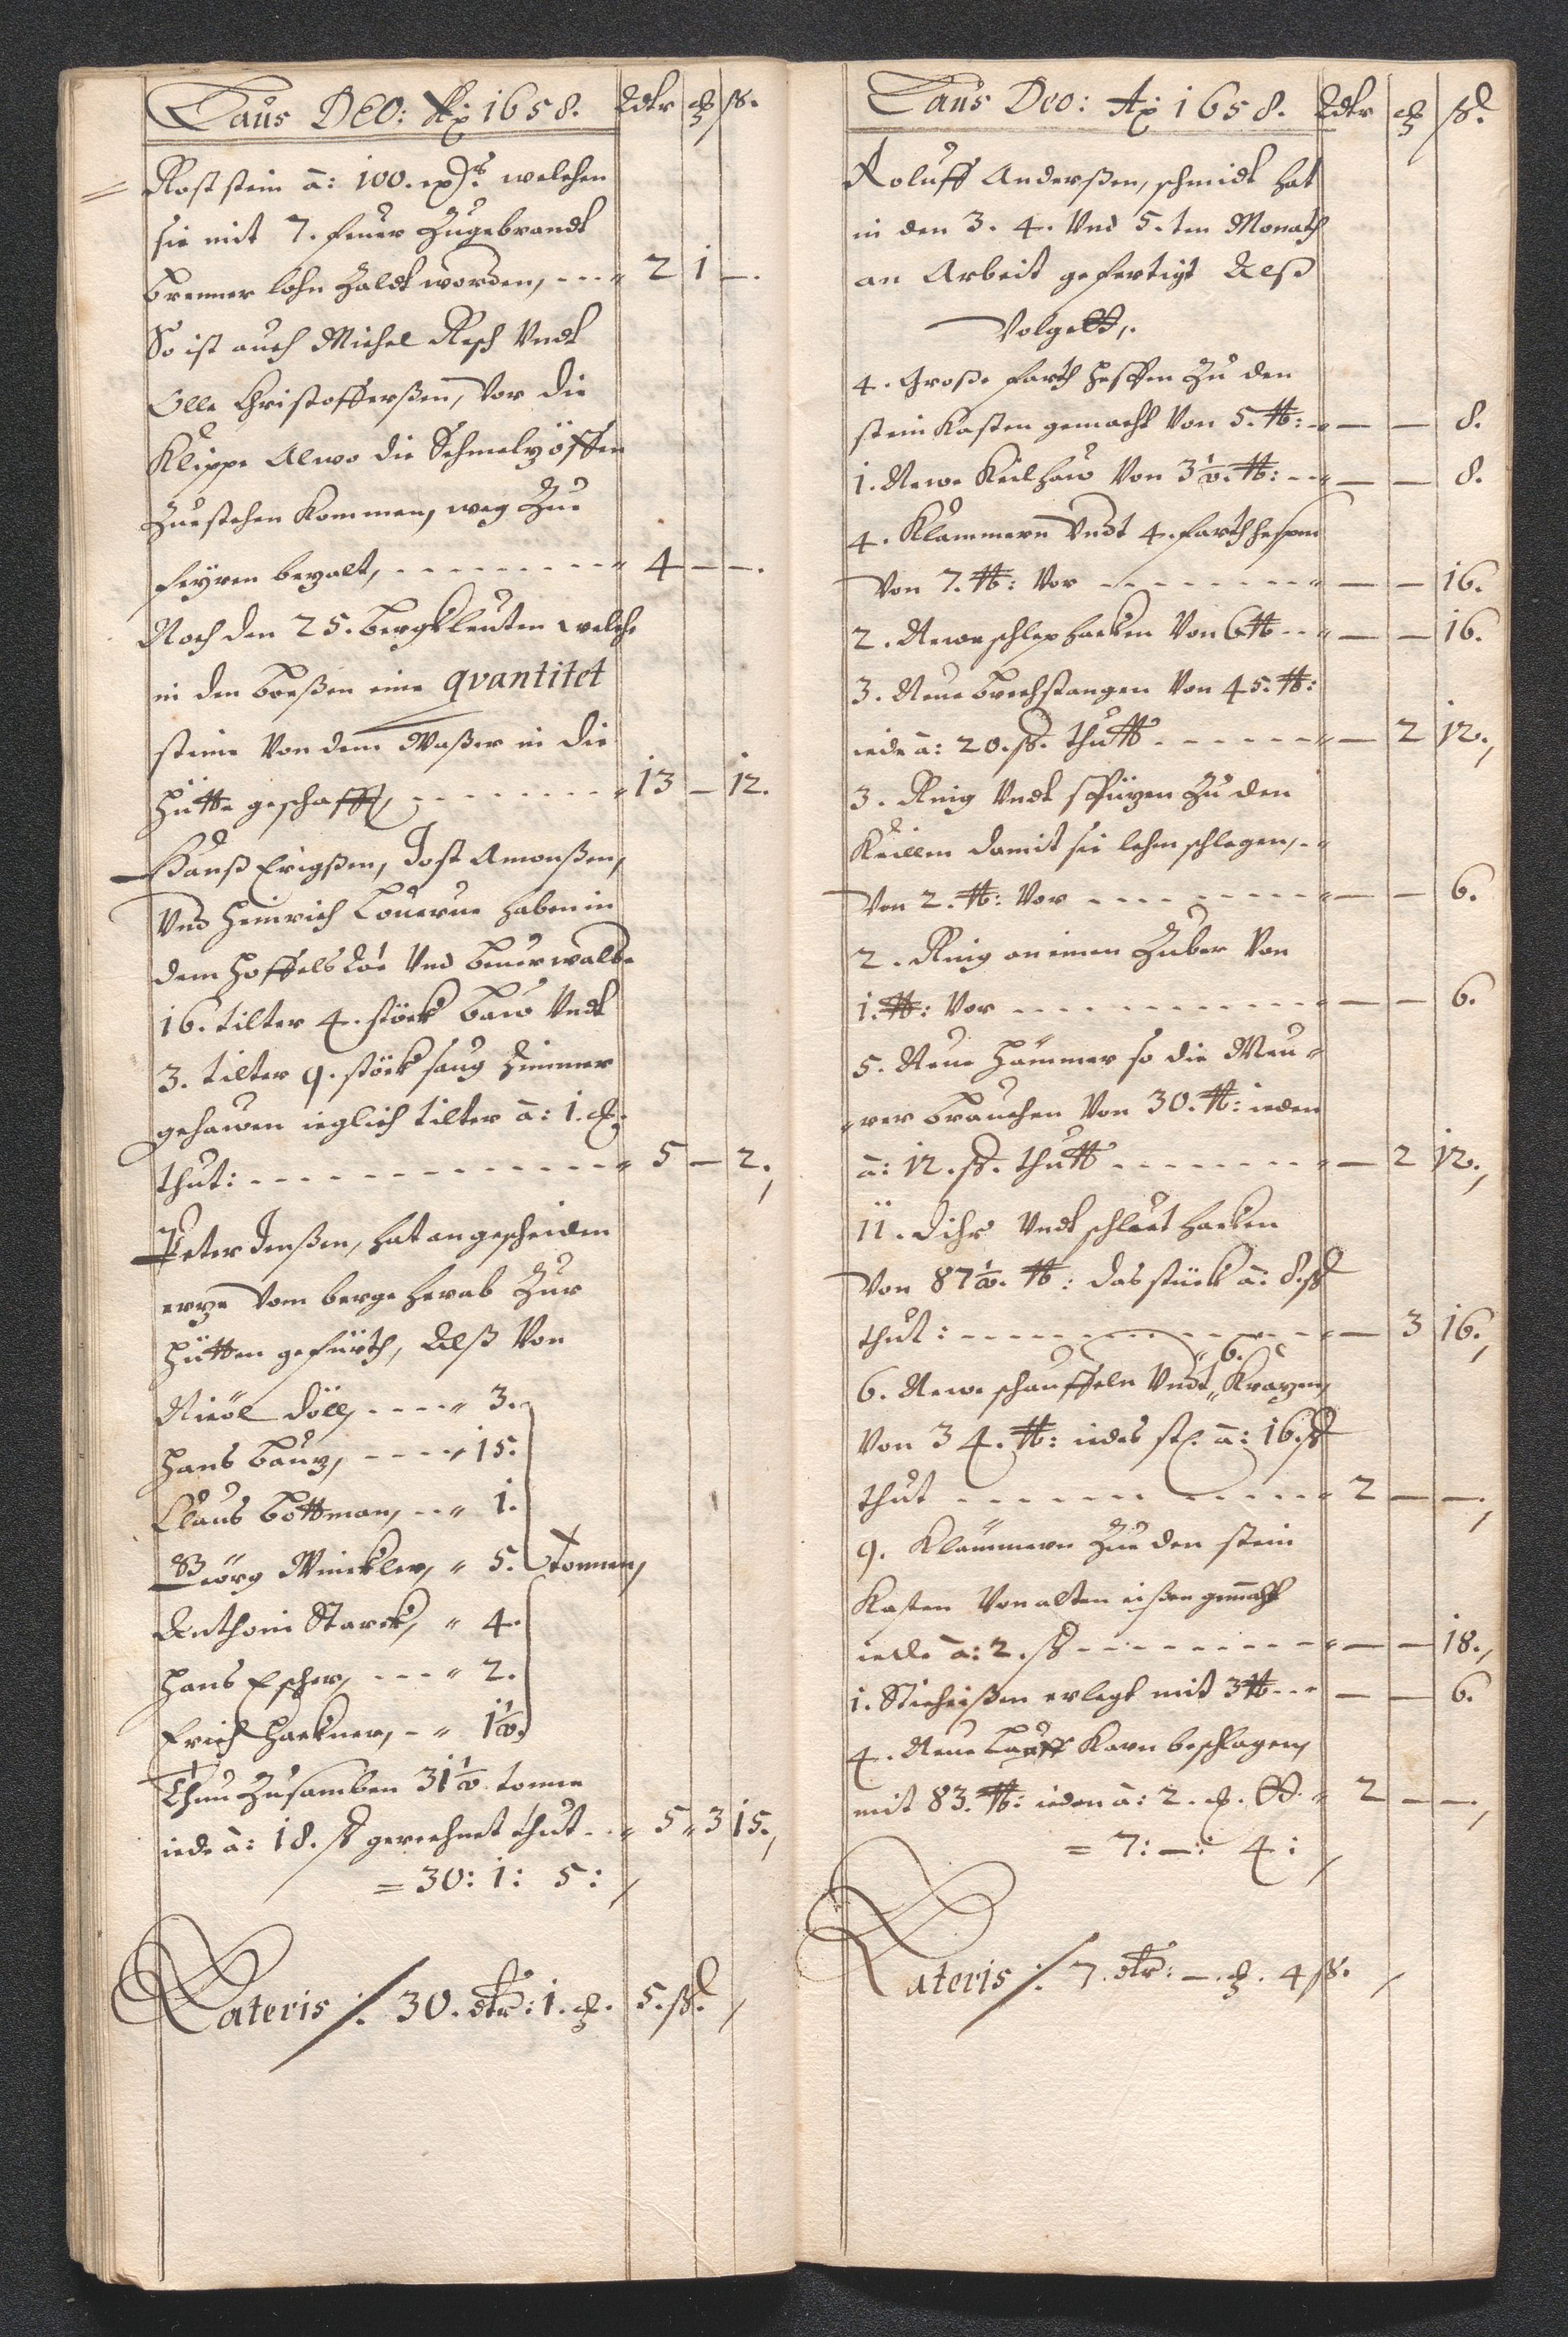 Laus DEO: Ao 1658. Rdlr ort ß.
Rost stein â: 100. welchen
sie mit 7. feuer Zugebrandt
brenner lohn Zaldt worden, - - - 2 1 —.
So ist auch Michel Resch Undt
Olle Christofferßen, Vor die
Klippe Alwo die Schmelzöffen
Zuestehen kommen, weg Zue
feyren bezalt, - - - - - - - - - 4 — —.
Noch den 25. bergkleuten welche
in den boeßen eine qvantitet
steine Von dem Waßer in die
Hütte geschafft, - - - - - - - - 13 — 12.
Hanß Erigßen, Jost Amonßen,
Und Heinrich haben in
dem Und walde
16. tilter 4. stöck baw Undt
3. tilter 9. stöck Zimmer
gehawen ieglich tilter â: 1. ort
thut: - - - - - - - - - - - - 5 — 2.,
Peter Jenßen, hat an gescheiden
ertze Vom berge herab Zur
Hütten geführth, Alß Von
Nicöl Döll, - - - - 3.
Hans bautz, - - - - 15.
Claus bottman, - - 1.
Geörg Winckler, 5. tonnen,
Anthoni Starck, 4.
Hans Escher, - - - 2.
Erich Hackner, - 1 1/2.
Thun Zusamben 31 1/2. tonne
iede â: 18. ß gerechnet thut - - 5 3 15.,
= 30: 1: 5:,
Lateris /. 30. dlr: 1. ort. 5. ß.,
Laus Deo: Ao 1658. Rdlr ort ß.
Roluff Anderßen, schmidt hat
in den 3. 4. Und 5.ten Monath
an Arbeit gefertigt Alß
Volgett,.
4. Große farth Haspen Zu den
stein Kasten gemacht Von 5. ℔: — — 8.
1. Newe Keilhaw Von 3 1/2. ℔: - - — — 8.
4. Klammern Undt 4. farth haspen
Von 7. ℔: Vor - - - - - - - - — — 16.
2. Newe schlep hacken Von 6 ℔ - - — — 16.
3. Neue brechstangen Von 45. ℔:
iede â: 20. ß. thutt - - - - - - — 2 12.,
3. Ring Undt Zu den
Keillen damit sie lehm schlagen, - -
Von 2. ℔: Vor - - - - - - - - — — 6.
2. Ring an einen Zuber Von
1. ℔: Vor - - - - - - - - - - — — 6.
5. Neue Hammer so die Meu-
-rer brauchen Von 30. ℔: ieden
â: 12. ß. thutt - - - - - - - - — 2 12.,
11. Undt hacken
Von 87 1/2. ℔: das stück â: 8. ß
thut: - - - - - - - - - - - - - — 3 16.,
6. Newe schauffeln Undt 6. Kratzen,
Von 34. ℔: iedes st: â: 16. ß
thut - - - - - - - - - - - 2 — —.,
9. Klammern Zue den stein
Kasten Von alten eißen gemacht
iede â: 2. ß - - - - - - - - - — — 18.,
1. Sticheißen erlegt mit 3 ℔ - - - — — 6.
4. Neue Lauff Karn beschlagen,
mit 83. ℔: ieden â: 2. ort. 2 — —.,
= 7: —: 4:,
Lateris /. 7. dlr: —. ort. 4 ß.,